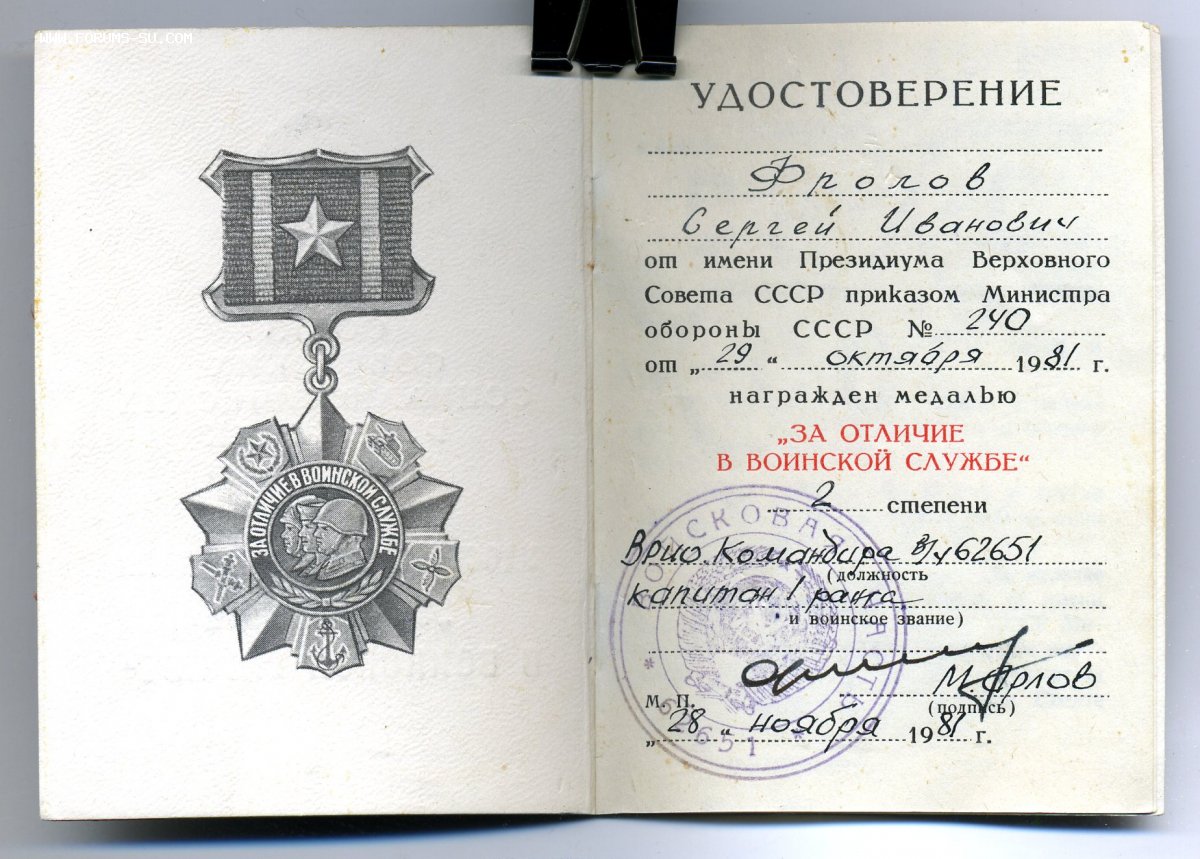 WWW.FORUMS-SU.COM
ЗА ОТЛИЧИЕ В ВОИНСКОЙ СЛУЖБЕ
УДОСТОВЕРЕНИЕ
Фролов
Сергей Иванович
от имени Президиума Верховного
Совета СССР приказом Министра
обороны СССР № 240
от „29“ октября 1981 г.
награжден медалью
„ЗА ОТЛИЧИЕ
В ВОИНСКОЙ СЛУЖБЕ“
2 степени
Врио. Командира в/ч 62651
(должность
капитан 1 ранга
и воинское звание)
М. Орлов
М. П.
(подпись)
„28“ ноября 1981 г.
ВОЙСКОВАЯ ЧАСТЬ
* 62651 *